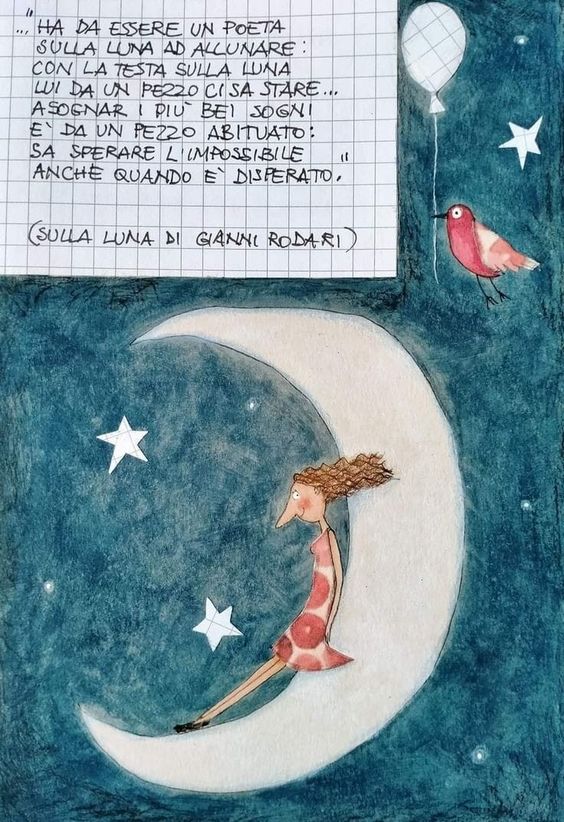 "... HA DA ESSERE UN POETA
SULLA LUNA AD ALLUNARE:
CON LA TESTA SULLA LUNA
LUI DA UN PEZZO CI SA STARE...
A SOGNAR I PIÙ BEI SOGNI
E' DA UN PEZZO ABITUATO:
SA SPERARE L'IMPOSSIBILE
ANCHE QUANDO E' DISPERATO."
(SULLA LUNA DI GIANNI RODARI)